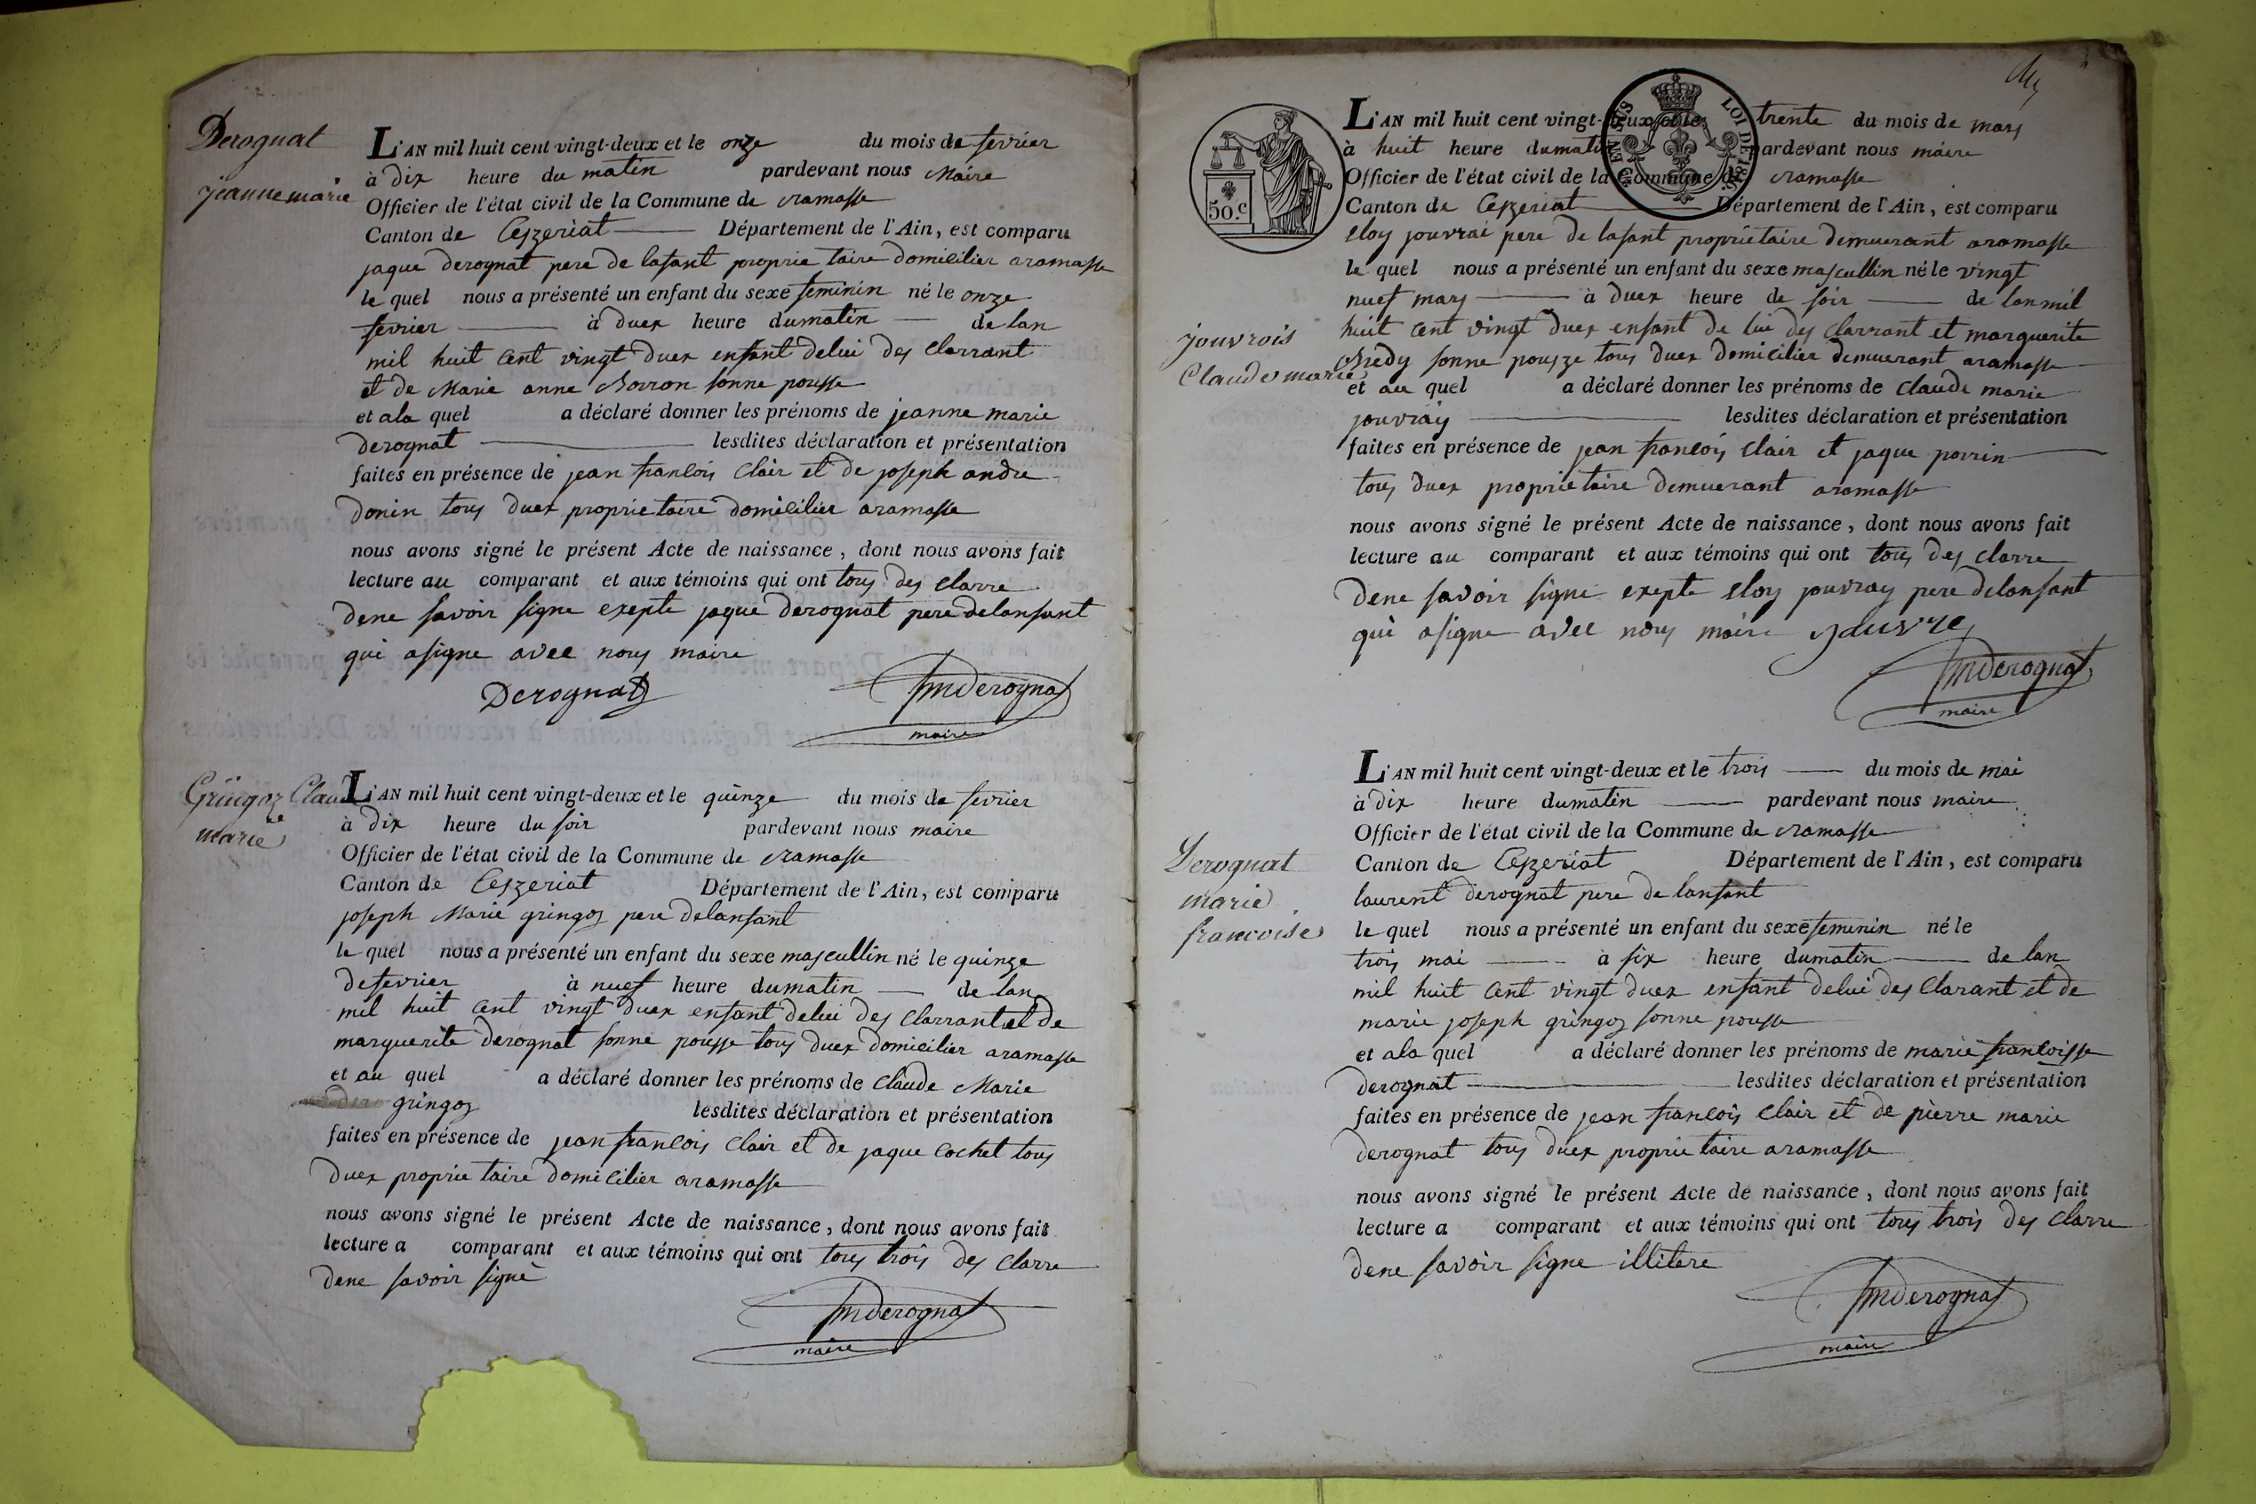 Derognat
jeanne marie
L'AN mil huit cent vingt-deux et le onze du mois de fevrier
à dix heure du matin pardevant nous Maire
Officier de l'état civil de la Commune de ramasse
Canton de Ceyzeriat Département de l'Ain, est comparu
jaque derognat pere de lafant proprie taire domicilier aramasse
le quel nous a présenté un enfant du sexe feminin né le onze
fevrier à duex heure dumatin de lan
mil huit cent vingt duex enfant delui des clarrant
et de Marie anne sonne pousse
et ala quel a déclaré donner les prénoms de jeanne marie
derognat lesdites déclaration et présentation
faites en présence de jean francois Clair et de joseph andre
donin tous duex proprietaire domicilier aramasse
nous avons signé le présent Acte de naissance, dont nous avons fait
lecture au comparant et aux témoins qui ont tous des clarre
dene savoir signe exepte jaque derognat pere delanfant
qui asigne avec nous maire
Derognat
derognat
maire
Gringoz Claude
marie
L'AN mil huit cent vingt-deux et le quinze du mois de fevrier
à dix heure du soir pardevant nous maire
Officier de l'état civil de la Commune de ramasse
Canton de Ceyzeriat Département de l'Ain, est comparu
joseph Marie gringoz pere delanfant
le quel nous a présenté un enfant du sexe mascullin né le quinze
defevrier à nuef heure dumatin de lan
mil huit cent vingt duex enfant delui des clarrant et de
marguerite derognat sonne pousse tous duex domicilier aramasse
et au quel a déclaré donner les prénoms de claude Marie
gringoz lesdites déclaration et présentation
faites en présence de jean francois Clair et de jaque cochet tous
duex proprie taire domicilier aramasse
nous avons signé le présent Acte de naissance, dont nous avons fait
lecture a comparant et aux témoins qui ont tous trois des clarre
dene savoir signé
derognat
maire
50.c
LOI DE
L'AN mil huit cent vingt-deux et le trente du mois de mars
à huit heure dumatin pardevant nous maire
Officier de l'état civil de la Commune de ramasse
Canton de Ceyzeriat Département de l'Ain, est comparu
eloy jouvrai pere de lafant proprietaire demuerant aramasse
le quel nous a présenté un enfant du sexe mascullin né le vingt
nuef mars à duex heure de soir de lan mil
jouvrois
Claude marie
huit cent vingt duex enfant de lui des clarrant et marguerite
sonne pousze tous duex domicilier demuerant aramasse
et au quel a déclaré donner les prénoms de claude marie
jouvray lesdites déclaration et présentation
faites en présence de jean francois Clair et jaque poirin
tous duex proprietaire demuerant aramasse
nous avons signé le présent Acte de naissance, dont nous avons fait
lecture au comparant et aux témoins qui ont tous des clarre
dene savoir signé exepte eloy jouvray pere delanfant
qui asigne avec nous maire
derognat
maire
Derognat
marie
francoise
L'AN mil huit cent vingt-deux et le trois du mois de mai
à dix heure dumatin pardevant nous maire
Officier de l'état civil de la Commune de ramasse
Canton de Ceyzeriat Département de l'Ain, est comparu
laurent derognat pere de lanfant
le quel nous a présenté un enfant du sexe feminin né le
trois mai à six heure dumatin de lan
mil huit cent vingt duex enfant delui des Clarant et de
marie joseph gringoz sonne pousse
et ala quel a déclaré donner les prénoms de marie francoisse
derognat lesdites déclaration et présentation
faites en présence de jean francois Clair et de pierre marie
derognat tous duex proprie taire aramasse
nous avons signé le présent Acte de naissance, dont nous avons fait
lecture a comparant et aux témoins qui ont tous trois des clarre
dene savoir signe illitere
derognat
maire